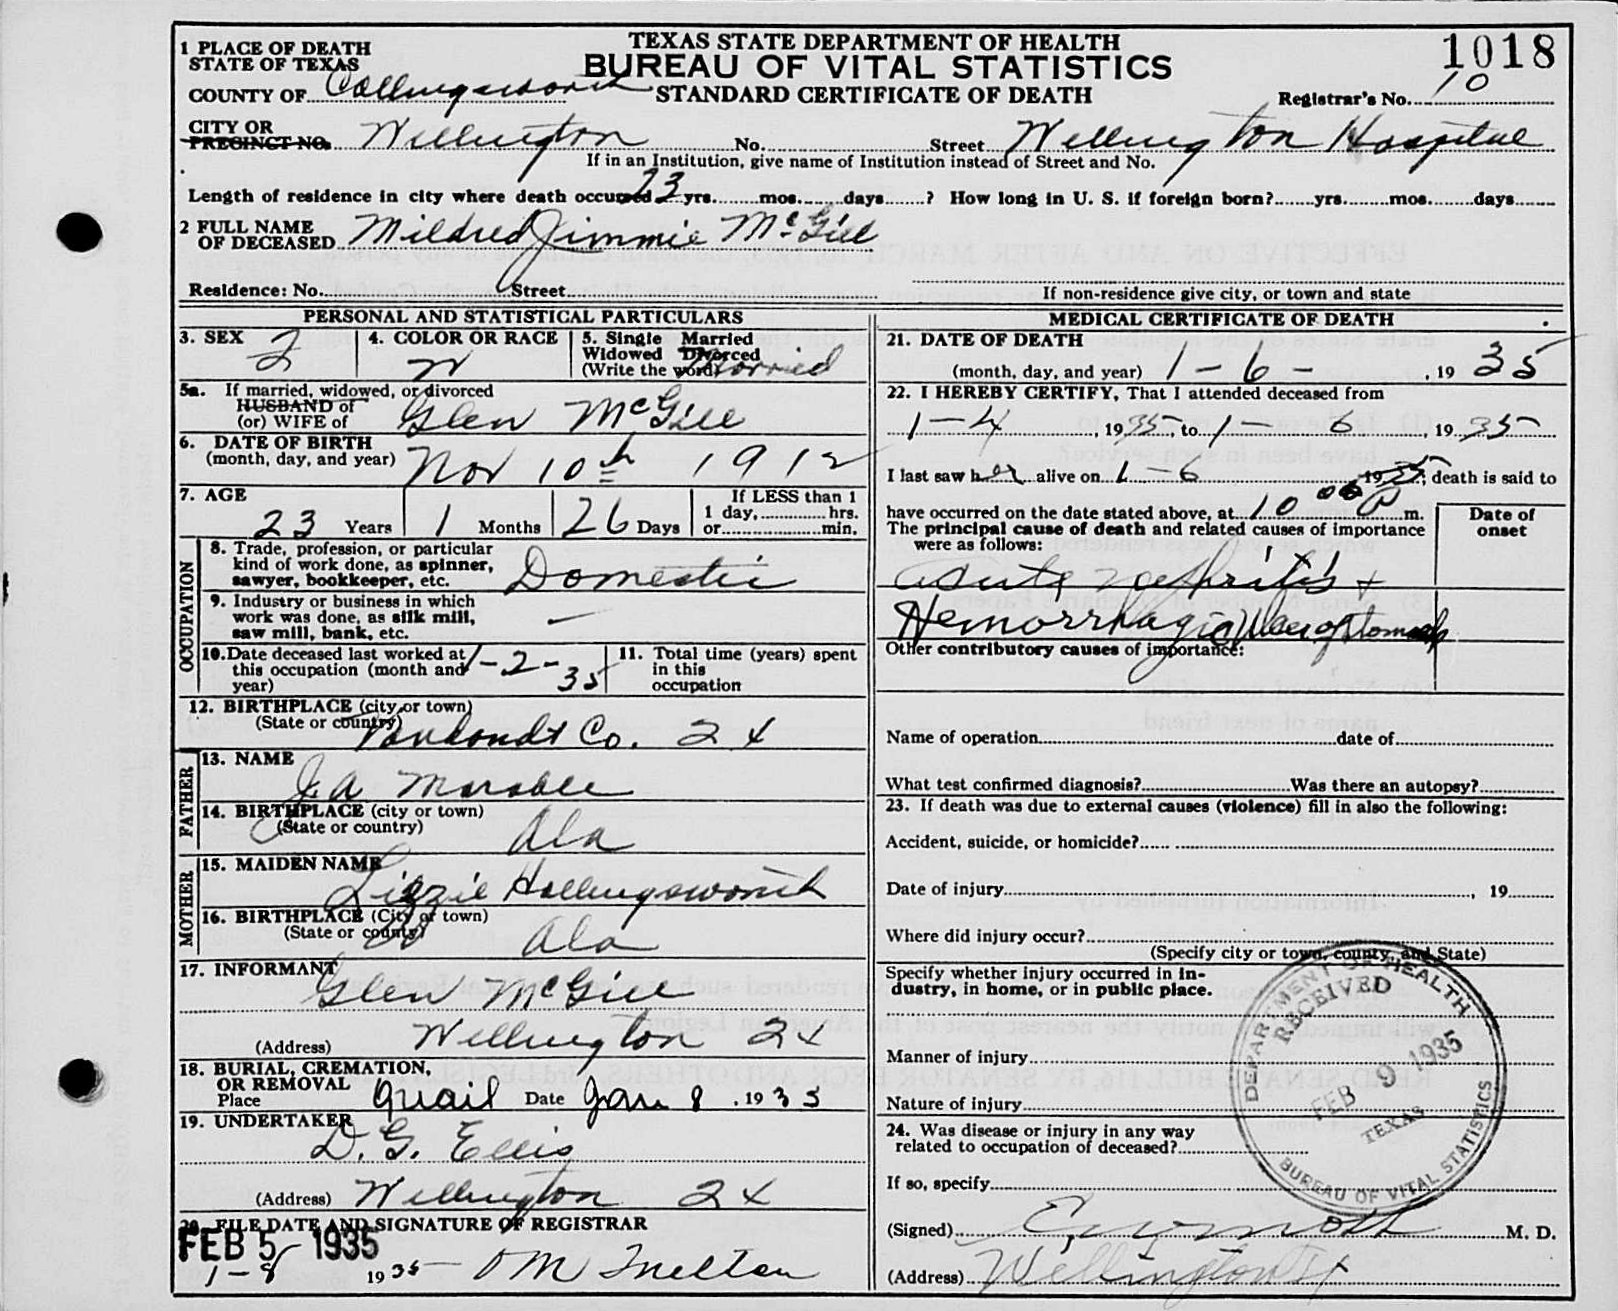 TEXAS STATE DEPARTMENT OF HEALTH
BUREAU OF VITAL STATISTICS
STANDARD CERTIFICATE OF DEATH
1018
Registrar's No. 10
1 PLACE OF DEATH
STATE OF TEXAS
COUNTY OF Collingsworth
CITY OR PRECINCT NO. Wellington No. Street Wellington Hospital
If in an Institution, give name of Institution instead of Street and No.
Length of residence in city where death occurred 23 yrs. mos. days ? How long in U. S. if foreign born? yrs. mos. days
2 FULL NAME OF DECEASED Mildred Jimmie McGill
Residence: No. Street
If non-residence give city, or town and state
PERSONAL AND STATISTICAL PARTICULARS
3. SEX F
4. COLOR OR RACE W
5. Single Married Widowed Divorced (Write the word) Married
5a. If married, widowed, or divorced
HUSBAND of
(or) WIFE of Glen McGill
6. DATE OF BIRTH
(month, day, and year) Nov 10th 1912
7. AGE 23 Years 1 Months 26 Days
If LESS than 1
1 day, hrs.
or min.
OCCUPATION
8. Trade, profession, or particular
kind of work done, as spinner,
sawyer, bookkeeper, etc. Domestic
9. Industry or business in which
work was done, as silk mill,
saw mill, bank, etc. —
10. Date deceased last worked at
this occupation (month and
year) 1-2-35
11. Total time (years) spent
in this
occupation
12. BIRTHPLACE (city or town)
(State or country) Vanzandt Co. Tx
FATHER
13. NAME
J. A Marable
14. BIRTHPLACE (city or town)
(State or country) Ala
MOTHER
15. MAIDEN NAME
Lizzie Hollingsworth
16. BIRTHPLACE (City or town)
(State or county) Ala
17. INFORMANT
Glen McGill
(Address) Wellington Tx
18. BURIAL, CREMATION,
OR REMOVAL
Place Quail Date Jan 8, 1935
19. UNDERTAKER
D. G. Ellis
(Address) Wellington Tx
20. FILE DATE AND SIGNATURE OF REGISTRAR
FEB 5 1935
1-8 1935 Melton
MEDICAL CERTIFICATE OF DEATH
21. DATE OF DEATH
(month, day, and year) 1-6-, 1935
22. I HEREBY CERTIFY, That I attended deceased from
1-4, 1935, to 1-6, 1935
I last saw her alive on 1-6 1935; death is said to
have occurred on the date stated above, at 10 00 P m.
The principal cause of death and related causes of importance
were as follows:
Date of onset
Acute Nephritis +
Hemorrhagic Ulcer of Stomach
Other contributory causes of importance:
Name of operation date of
What test confirmed diagnosis? Was there an autopsy?
23. If death was due to external causes (violence) fill in also the following:
Accident, suicide, or homicide?
Date of injury , 19
Where did injury occur?
(Specify city or town, county, and State)
Specify whether injury occurred in in-
dustry, in home, or in public place.
Manner of injury
Nature of injury
24. Was disease or injury in any way
related to occupation of deceased?
If so, specify
(Signed) M. D.
(Address) Wellington Tx
DEPARTMENT OF HEALTH
RECEIVED
FEB 9 1935
TEXAS
BUREAU OF VITAL STATISTICS